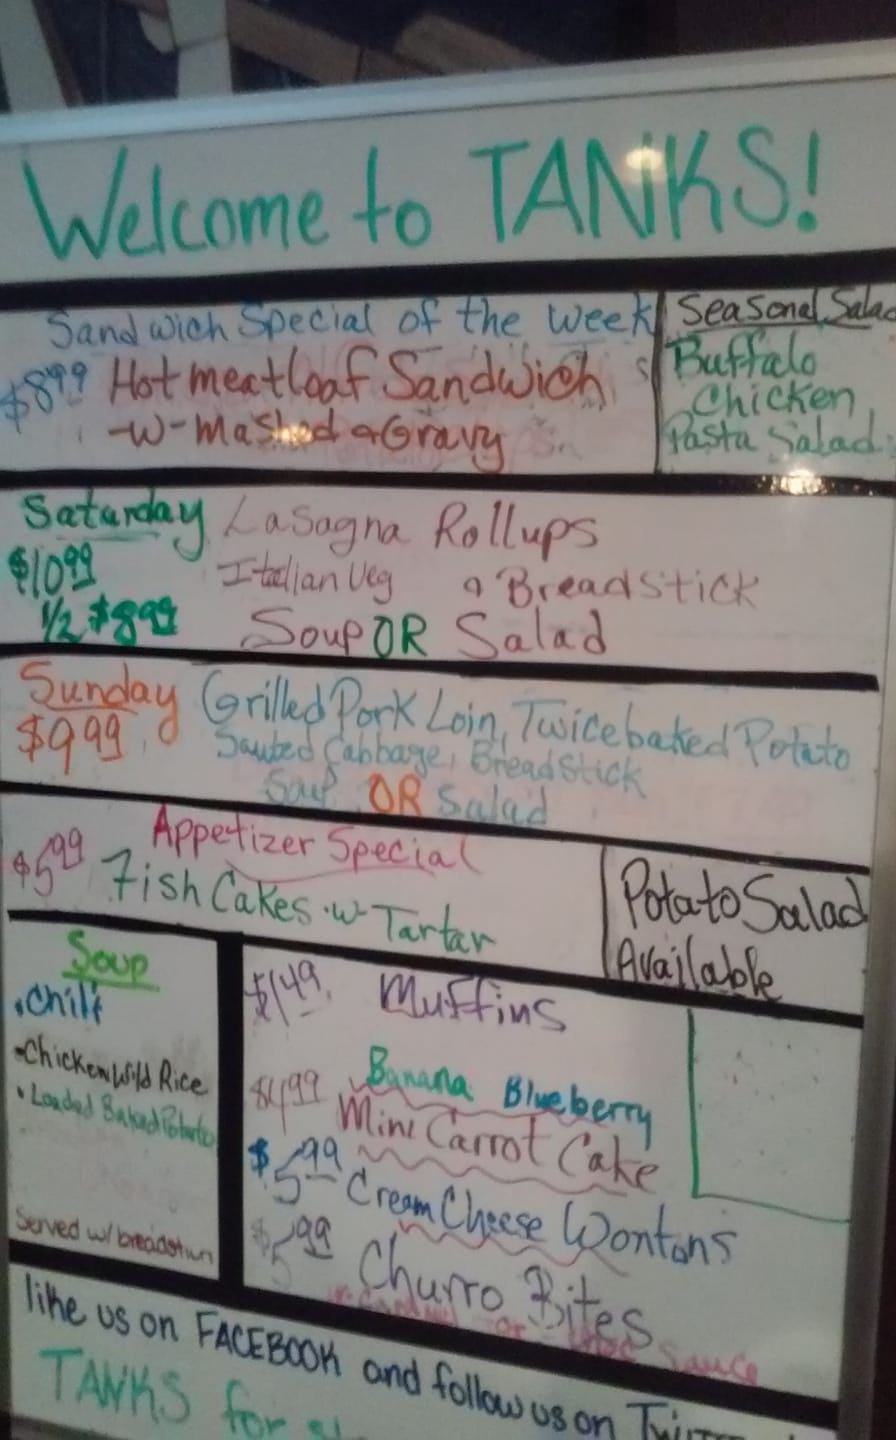 Welcome to TANKS!
Sandwich Special of the week
$8.99 Hot meatloaf Sandwich
-w- mashed & Gravy
Seasonal Salad
Buffalo
Chicken
Pasta Salad
Saturday Lasagna Rollups
$10.99 Italian Veg & Breadstick
1/2 $8.99 Soup OR Salad
Sunday Grilled Pork Loin, Twicebaked Potato
$9.99 Sauted Cabbage, Breadstick
Soup OR Salad
Appetizer Special
$5.99 Fish Cakes -w- Tartar
Potato Salad
Available
Soup
•Chili
•Chicken Wild Rice
•Loaded Baked Potato
Served w/
$1.49 Muffins
Banana Blueberry
$4.99 Mini Carrot Cake
$5.99 Cream Cheese Wontons
$5.99 Churro Bites
or sauce
like us on FACEBOOK and follow us on
TANKS for